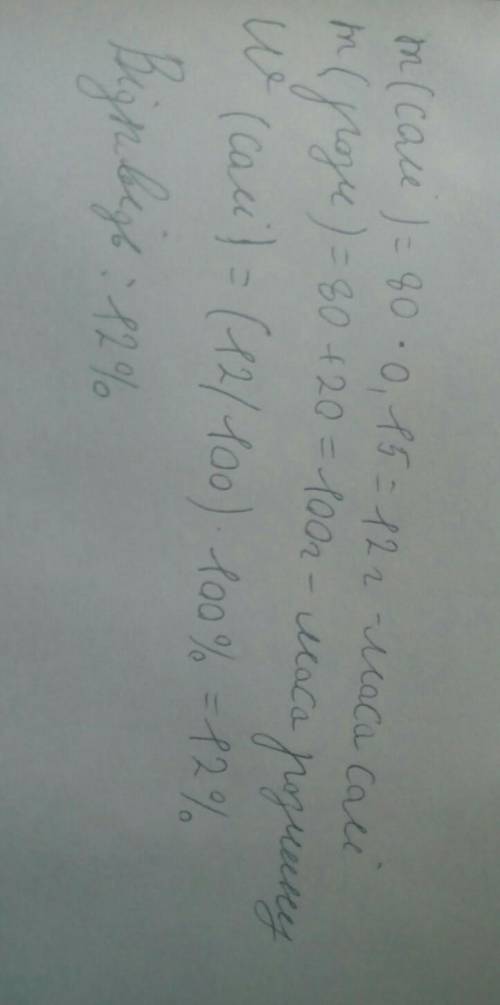 m(солі) = 80 · 0,15 = 12 г - маса солі
m(розч) = 80 + 20 = 100г - маса розчину
W (солі) = (12/100) · 100% = 12%
Відповідь : 12%